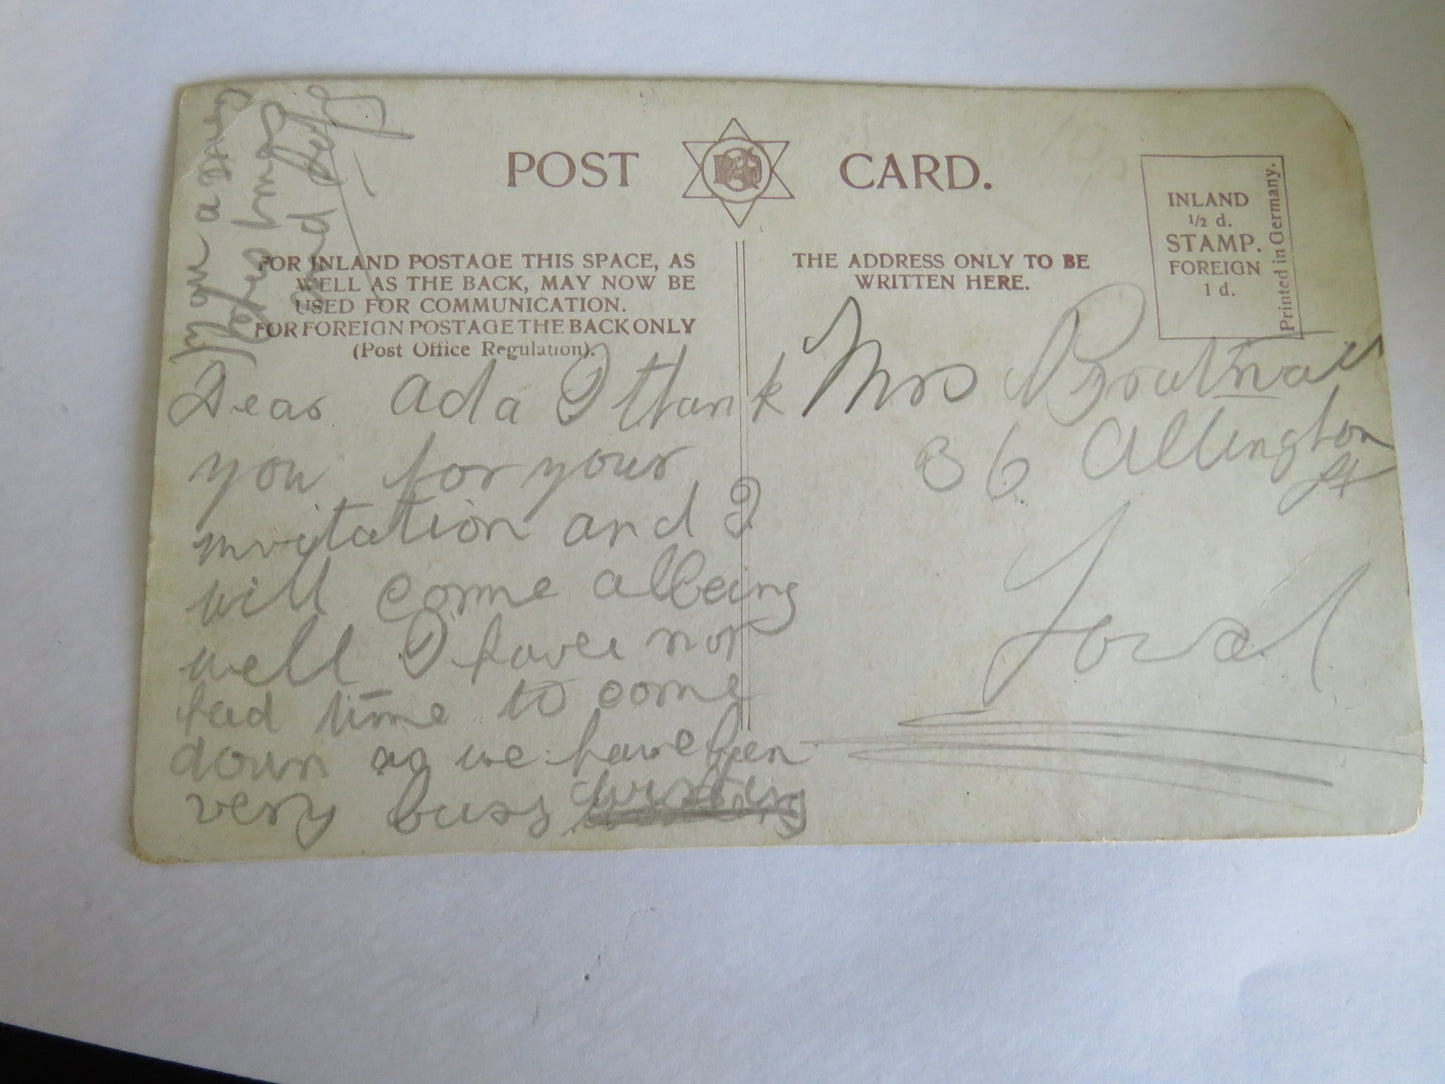 POST CARD.
FOR INLAND POSTAGE THIS SPACE, AS
WELL AS THE BACK, MAY NOW BE
USED FOR COMMUNICATION.
FOR FOREIGN POSTAGE THE BACK ONLY
(Post Office Regulation).
THE ADDRESS ONLY TO BE
WRITTEN HERE.
INLAND
1/2 d.
STAMP.
FOREIGN
1 d.
Printed in Germany.
Dear Ada I thank
you for your
invitation and I
will come all being
well I have not
had time to come
down as we have been
very busy
Mrs
36 Allington
St
Local
a
Xmas
and